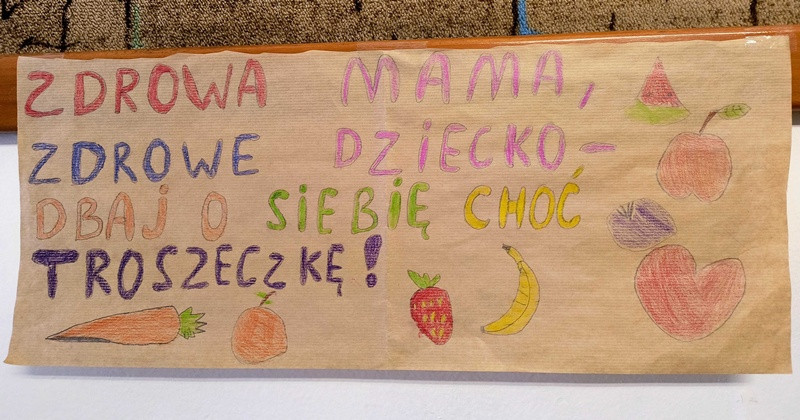 ZDROWA MAMA,
ZDROWE DZiECKO-
DBAJ O SiEBiĘ CHOĆ
TROSZECZKĘ!